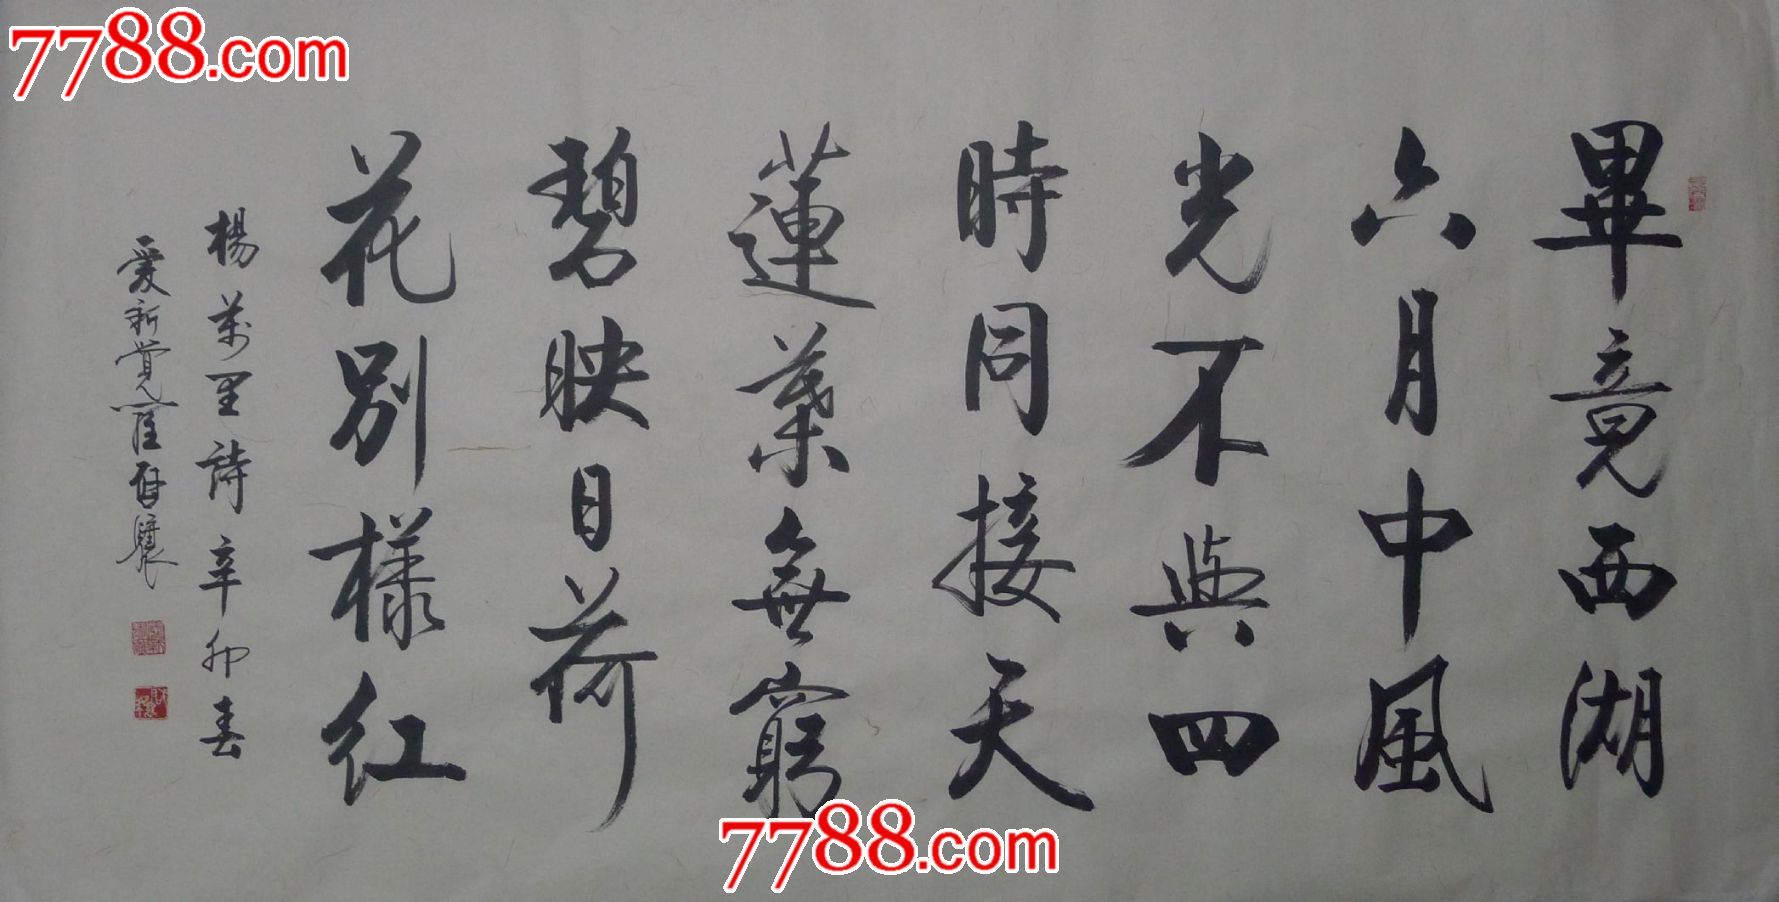 7788.com
畢竟西湖
六月中風
光不與四
時同接天
蓮葉無窮
碧映日荷
花別樣紅
楊萬里詩辛卯春
愛新覚羅啓驤
7788.com